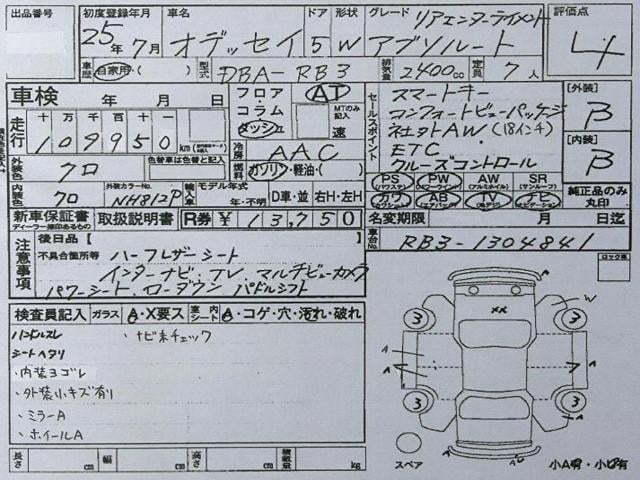 出品番号 初度登録年月 車名 ドア 形状 グレード リアエンターテイメント 評価点
25年 7月 オデッセイ 5 W アブソルート 4
車歴 自家用・( ) 型式 DBA-RB3 排気量 2400cc 定員 7人
車検 年 月 日
走行 十 万 千 百 十 一
109950 km
フロア・コラム ダッシュ
AT
MTのみ記入 速
セールスポイント
スマートキー
コンフォートビューパッケージ
社外AW (18インチ)
ETC
クルーズコントロール
[外装] B
[内装] B
外装色 クロ 色替車は色替と記入
冷房 AAC
燃料 ガソリン・軽油・( )
内装色 クロ 外装カラーNo. NH812P
輸入車 モデル年式 年・不明 D車・並 右H・左H
PS (パワステ) PW (パワーウィンドウ) AW (アルミホイール) SR (サンルーフ)
カワ AB (エアバッグ) TV ナビ (ナビゲーション)
純正品のみ丸印
新車保証書 ディーラー捺印あるもの 取扱説明書 R券 ¥ 13,750
名変期限 月 日迄
車台No. RB3-1304841
注意事項
後日品【
不具合箇所等 ハーフレザーシート
インターナビ.TV.マルチビューカメラ
パワーシート.ローダウン パドルシフト
検査員記入 ガラス A・X要ス 車内シート A・コゲ・穴・汚れ・破れ
ハンドルスレ ・ナビ未チェック
シートヘタリ
・内装ヨゴレ
・外装小キズ有り
・ミラーA
・ホイールA
長さ cm 幅 cm 高さ cm 積載量 kg
ロック車
××
W
A
3 3
A A A
A A
3 3
A
A
スペア 小A有・小U有